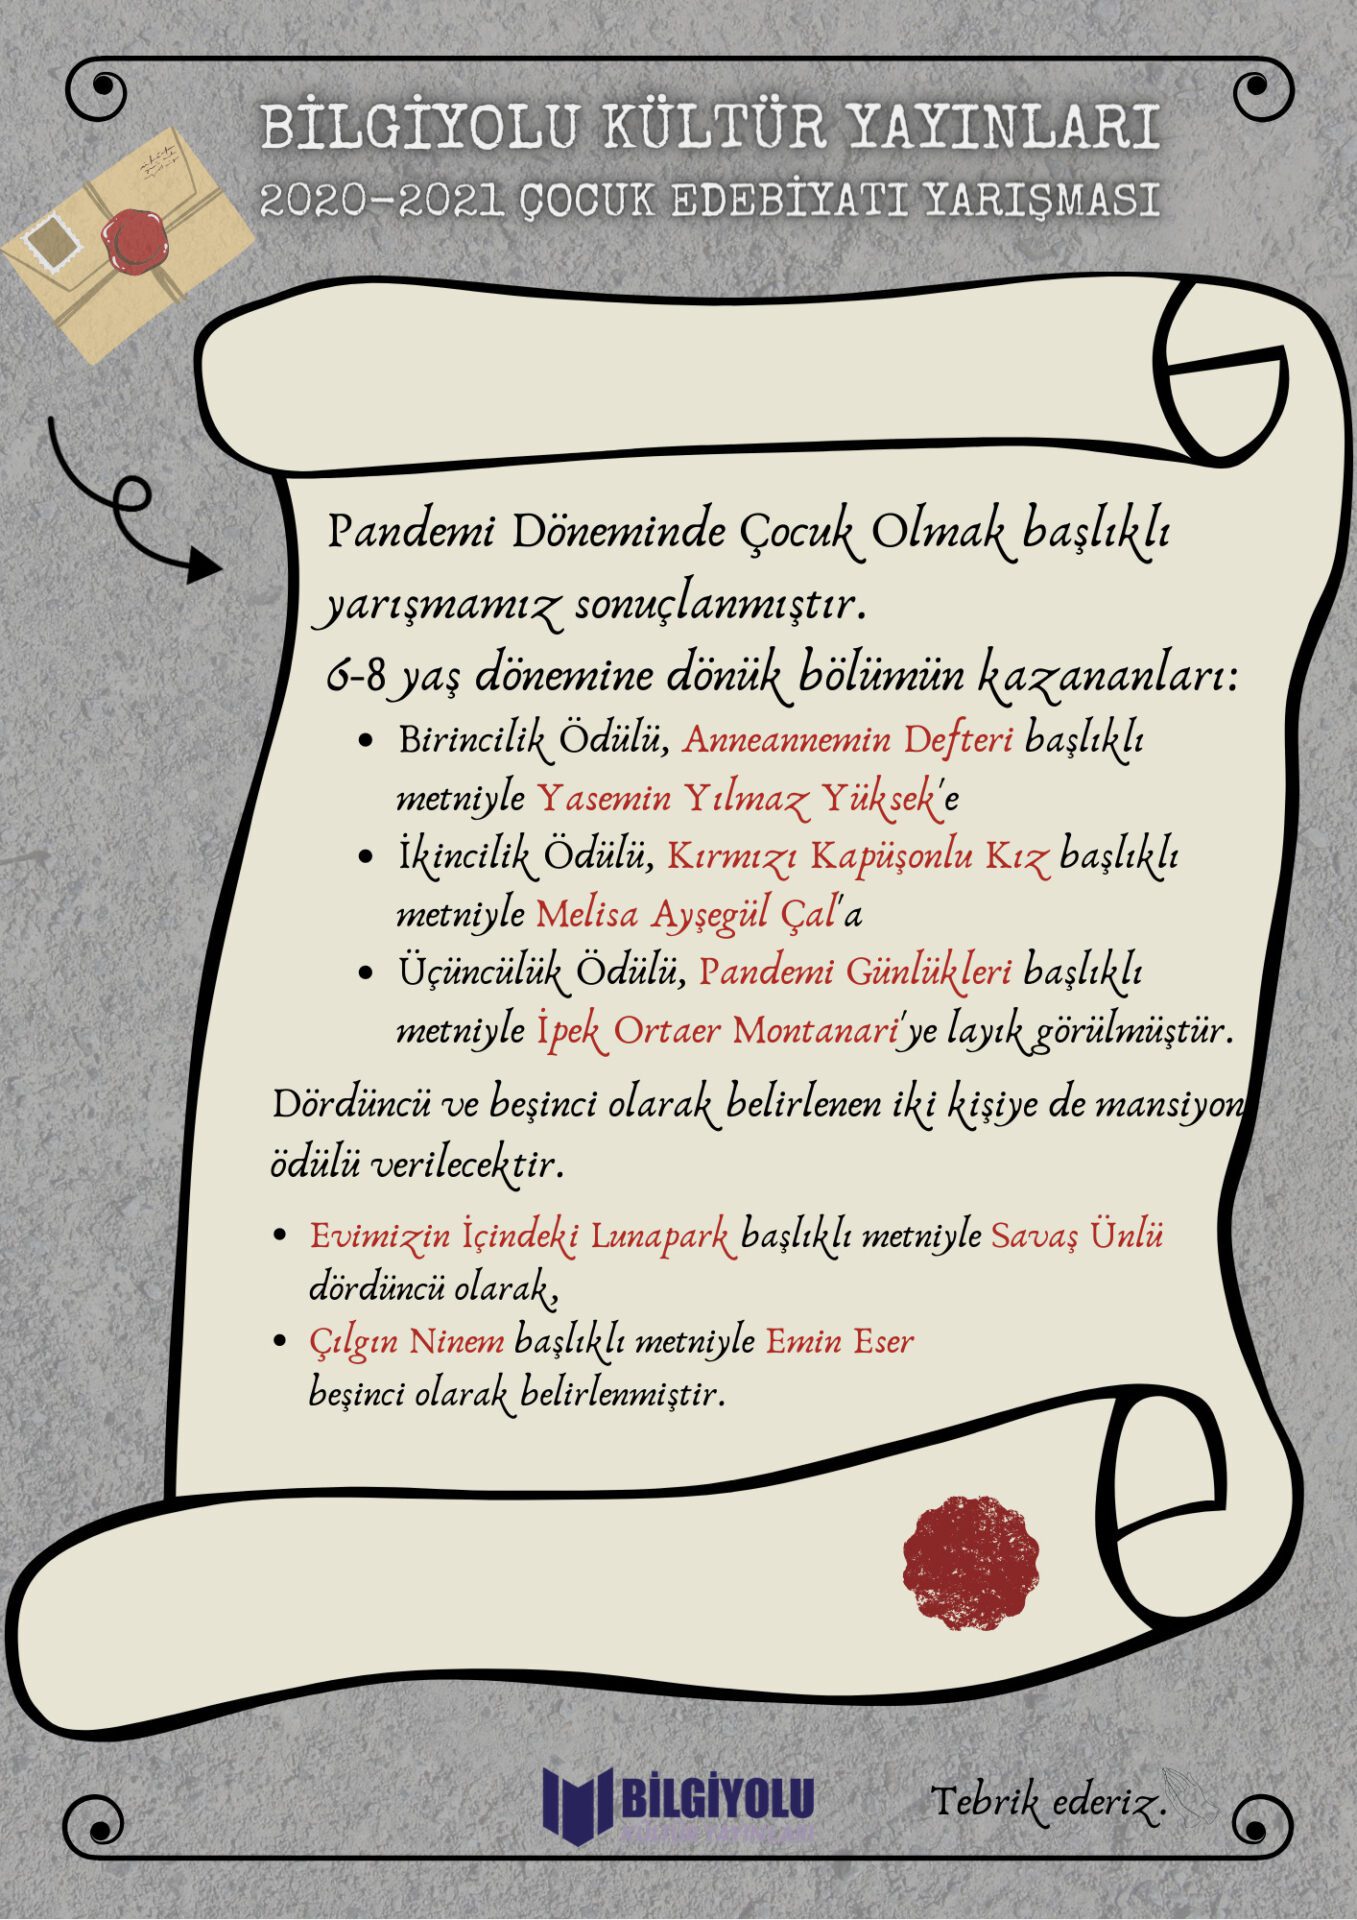 BİLGİYOLU KÜLTÜR YAYINLARI
2020-2021 ÇOCUK EDEBİYATI YARIŞMASI
Pandemi Döneminde Çocuk Olmak başlıklı
yarışmamız sonuçlanmıştır.
6-8 yaş dönemine dönük bölümün kazananları:
• Birincilik Ödülü, Anneannemin Defteri başlıklı
metniyle Yasemin Yılmaz Yüksek'e
• İkincilik Ödülü, Kırmızı Kapüşonlu Kız başlıklı
metniyle Melisa Ayşegül Çal'a
• Üçüncülük Ödülü, Pandemi Günlükleri başlıklı
metniyle İpek Ortaer Montanari'ye layık görülmüştür.
Dördüncü ve beşinci olarak belirlenen iki kişiye de mansiyon
ödülü verilecektir.
• Evimizin İçindeki Lunapark başlıklı metniyle Savaş Ünlü
dördüncü olarak,
• Çılgın Ninem başlıklı metniyle Emin Eser
beşinci olarak belirlenmiştir.
BİLGİYOLU
KÜLTÜR YAYINLARI
Tebrik ederiz.